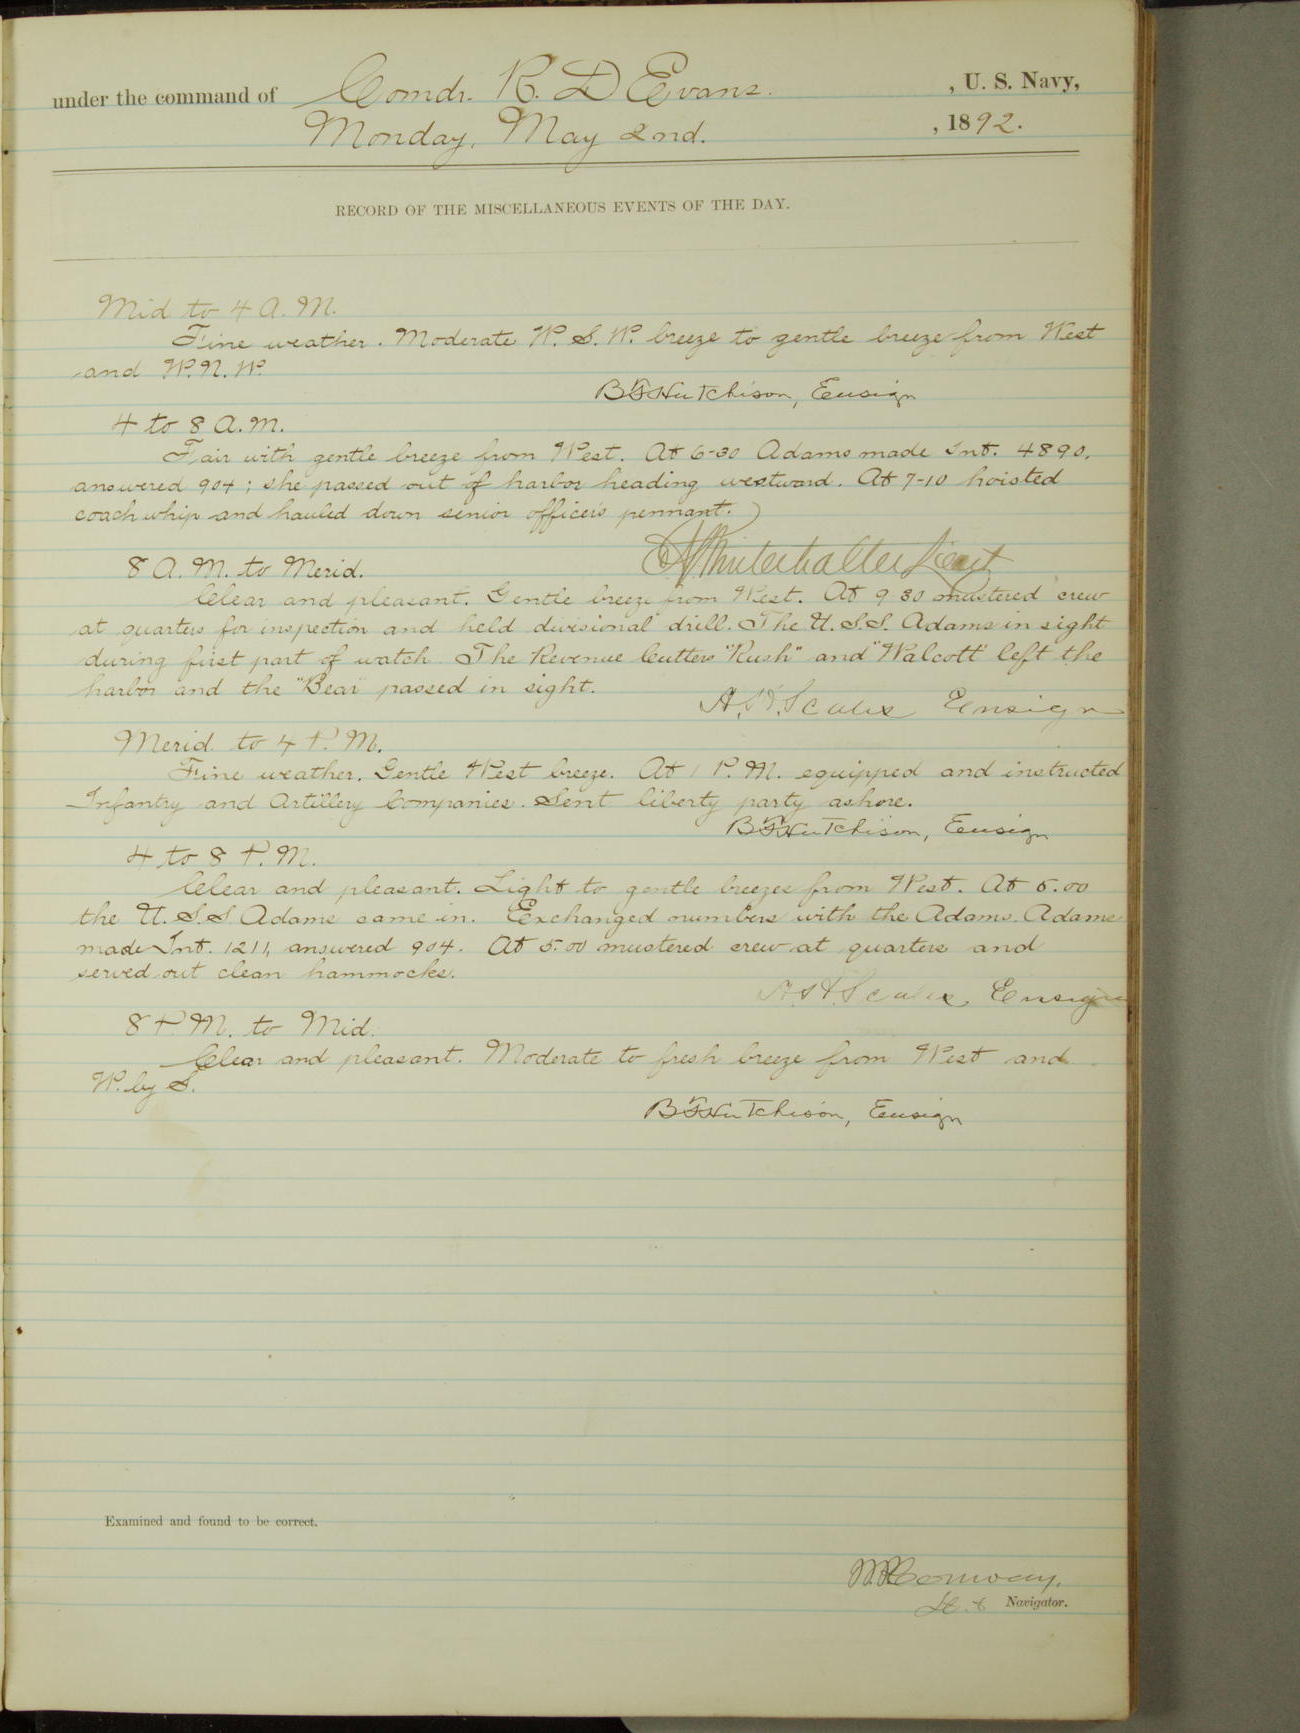 under the command of Comdr. R. D Evans. , U. S. Navy,
Monday, May 2nd. , 1892.
RECORD OF THE MISCELLANEOUS EVENTS OF THE DAY.
Mid to 4 A. M.
Fine weather. Moderate W. S. W. breeze to gentle breeze from West
and W. N. W.
B F Hutchison, Ensign
4 to 8 A. M.
Fair with gentle breeze from West. At 6-30 Adams made Int. 4890,
answered 904; she passed out of harbor heading westward. At 7-10 hoisted
coach whip and hauled down senior officers pennant.
Winterhalter Lieut
8 A. M. to Merid.
Clear and pleasant. Gentle breeze from West. At 9 30 mustered crew
at quarters for inspection and held divisional drill. The U. S. S. Adams in sight
during first part of watch. The Revenue Cutters "Rush" and "Walcott" left the
harbor and the "Bear" passed in sight.
A. H. Scales Ensign
Merid. to 4 P. M.
Fine weather. Gentle West breeze. At 1 P. M. equipped and instructed
Infantry and Artillery Companies. Sent liberty party ashore.
B F Hutchison, Ensign
4 to 8 P. M.
Clear and pleasant. Light to gentle breezes from West. At 5.00
the U. S. S Adams came in. Exchanged numbers with the Adams. Adams
made Int. 1211, answered 904. At 5.00 mustered crew at quarters and
served out clean hammocks.
A. H. Scales, Ensign
8 P. M. to Mid.
Clear and pleasant. Moderate to fresh breeze from West and
W. by S.
B F Hutchison, Ensign
Examined and found to be correct.
Conway.
Lt. & Navigator.